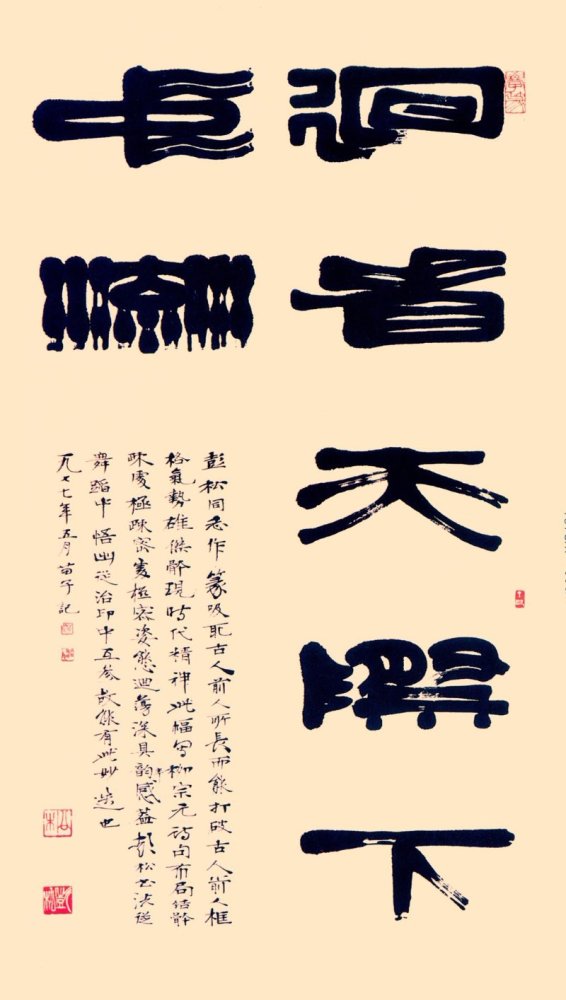 迴看天際下
中流
彭松同志作篆吸取古人前人所長而能打破古人前人框
格氣勢雄傑體現時代精神此幅寫柳宗元詩句布局結體
疎處極疎密處極密姿態迴蕩深具韵感蓋彭松書法從
舞蹈中悟出從治印中互參故能有此妙造也
一九七七年五月苗子記